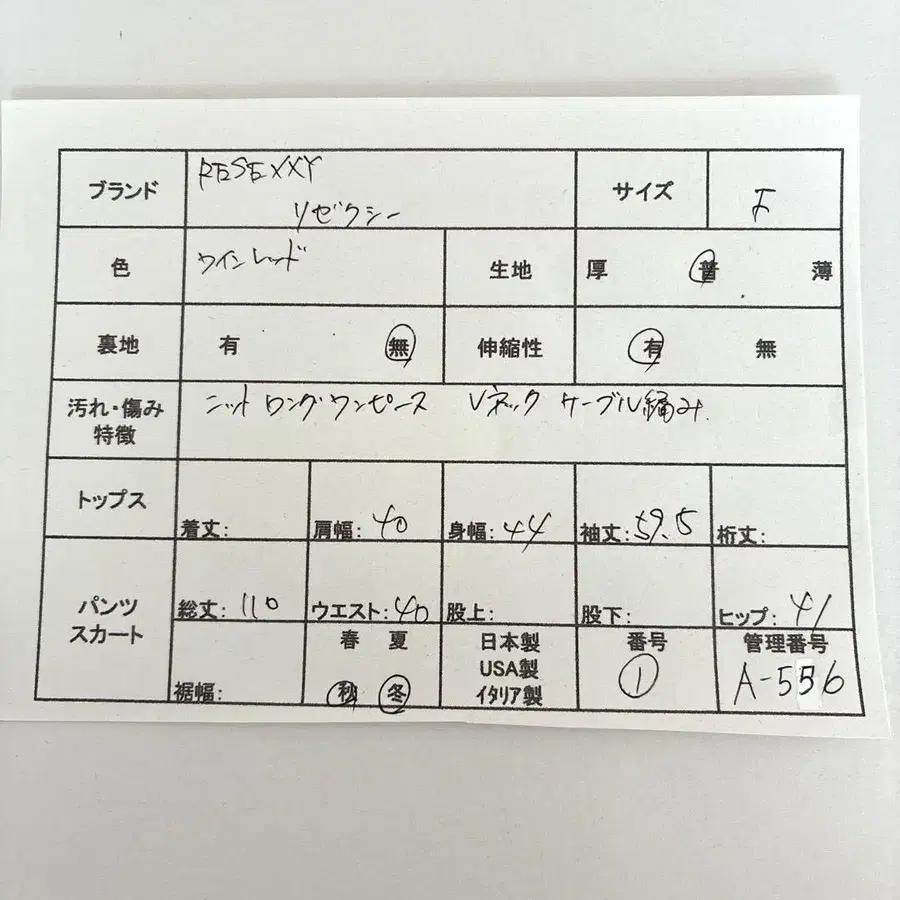 ブランド RESEXXY サイズ F
リゼクシー
色 ワインレッド 生地 厚 普 薄
裏地 有 無 伸縮性 有 無
汚れ・傷み
特徴
ニット ロングワンピース Vネック ケーブル編み
トップス 着丈: 肩幅: 40 身幅: 44 袖丈: 59.5 裄丈:
パンツ
スカート
総丈: 110 ウエスト: 40 股上: 股下: ヒップ: 41
裾幅:
春 夏
秋 冬
日本製
USA製
イタリア製
番号
①
管理番号
A-556